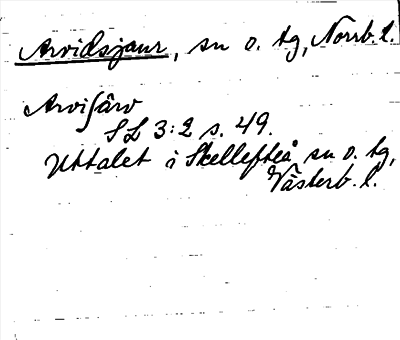 Arvidsjaur, sn o. tg, Norrb. l.
Arviʃârv
SL 3:2 s. 49.
Uttalet i Skellefteå sn o. tg,
Västerb. l.